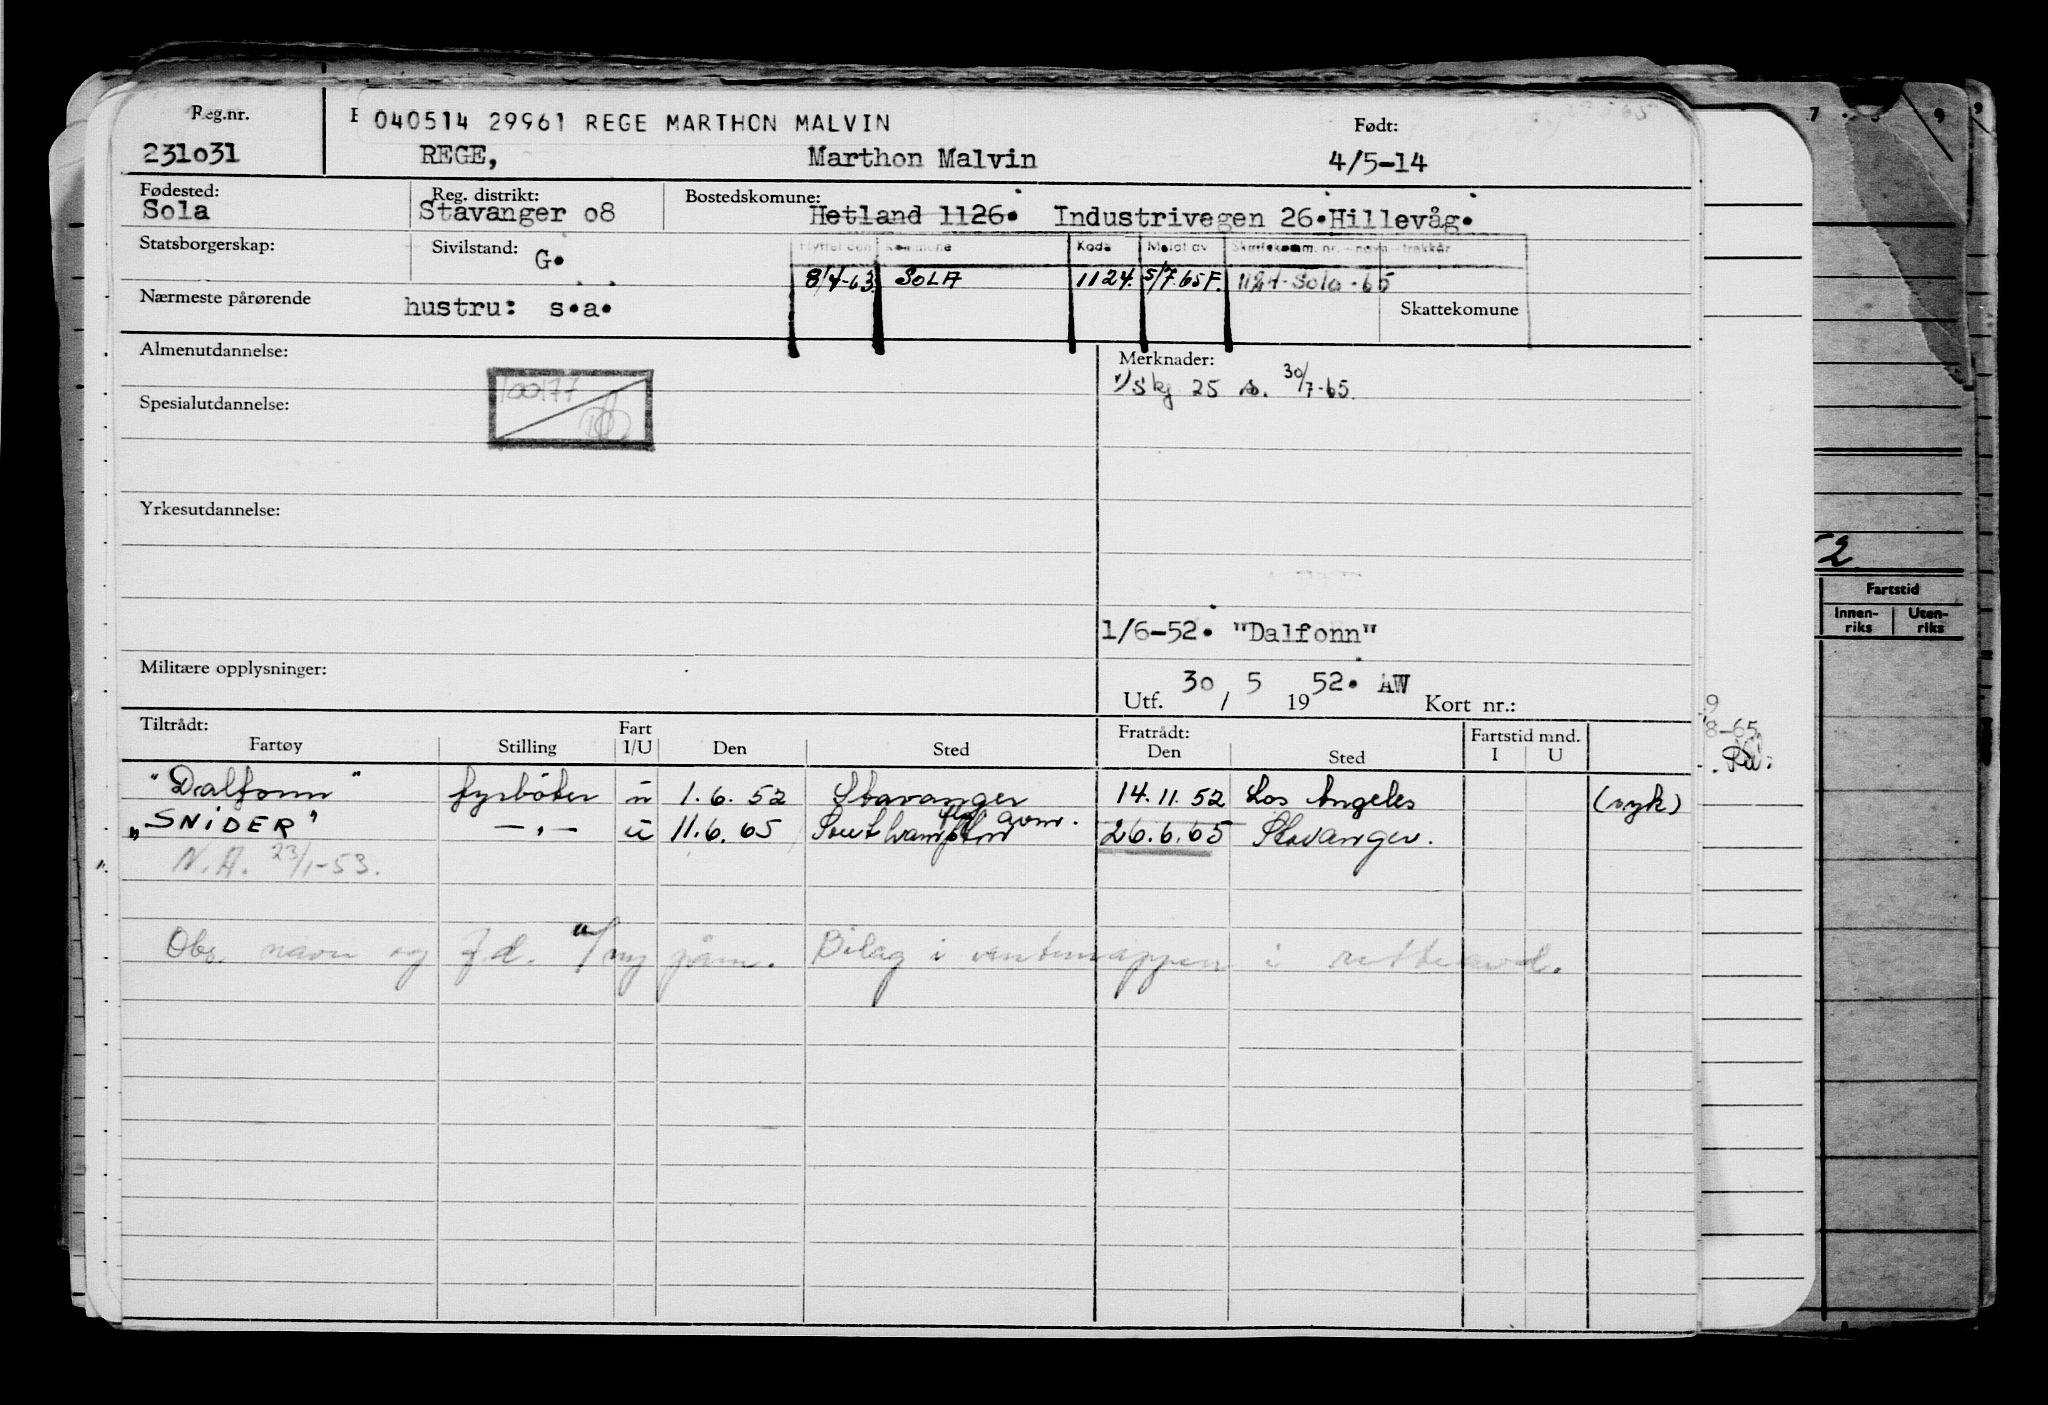 Reg.nr.
040514 29961 REGE MARTHON MALVIN
Født:
231031 REGE, Marthon Malvin 4/5-14
Fødested: Reg. distrikt: Bostedskomune:
Sola Stavanger 08 Hetland 1126. Industrivegen 26.Hillevåg.
Statsborgerskap: Sivilstand: G.
Flyttet den Kommune Kode Meldt av Skattekomm. nr. - navn - trekkår
8/4-63. SOLA 1124. 5/7.65F. 1124-Sola-65
Nærmeste pårørende hustru: s.a. Skattekomune
Almenutdannelse: Merknader:
100177
Skj 25 s. 30/7-65.
Spesialutdannelse:
Yrkesutdannelse:
1/6-52. "Dalfonn"
Militære opplysninger:
Utf. 30 / 5 1952. AW Kort nr.:
Tiltrådt: Fart Fratrådt: Fartstid mnd.
Fartøy Stilling I/U Den Sted Den Sted I U
"Dalfonn" fyrbøter u 1.6.52 Stavanger 14.11.52 Los Angeles (syk)
"SNIDER" —"— u 11.6.65 Southampton 26.6.65 Stavanger.
N.A. 23/1-53.
Obs. navn og f.d. ny gåm. Bilag i ventemappen i retteavd.
52
Fartstid
Innen-riks Uten-riks
9
8-65